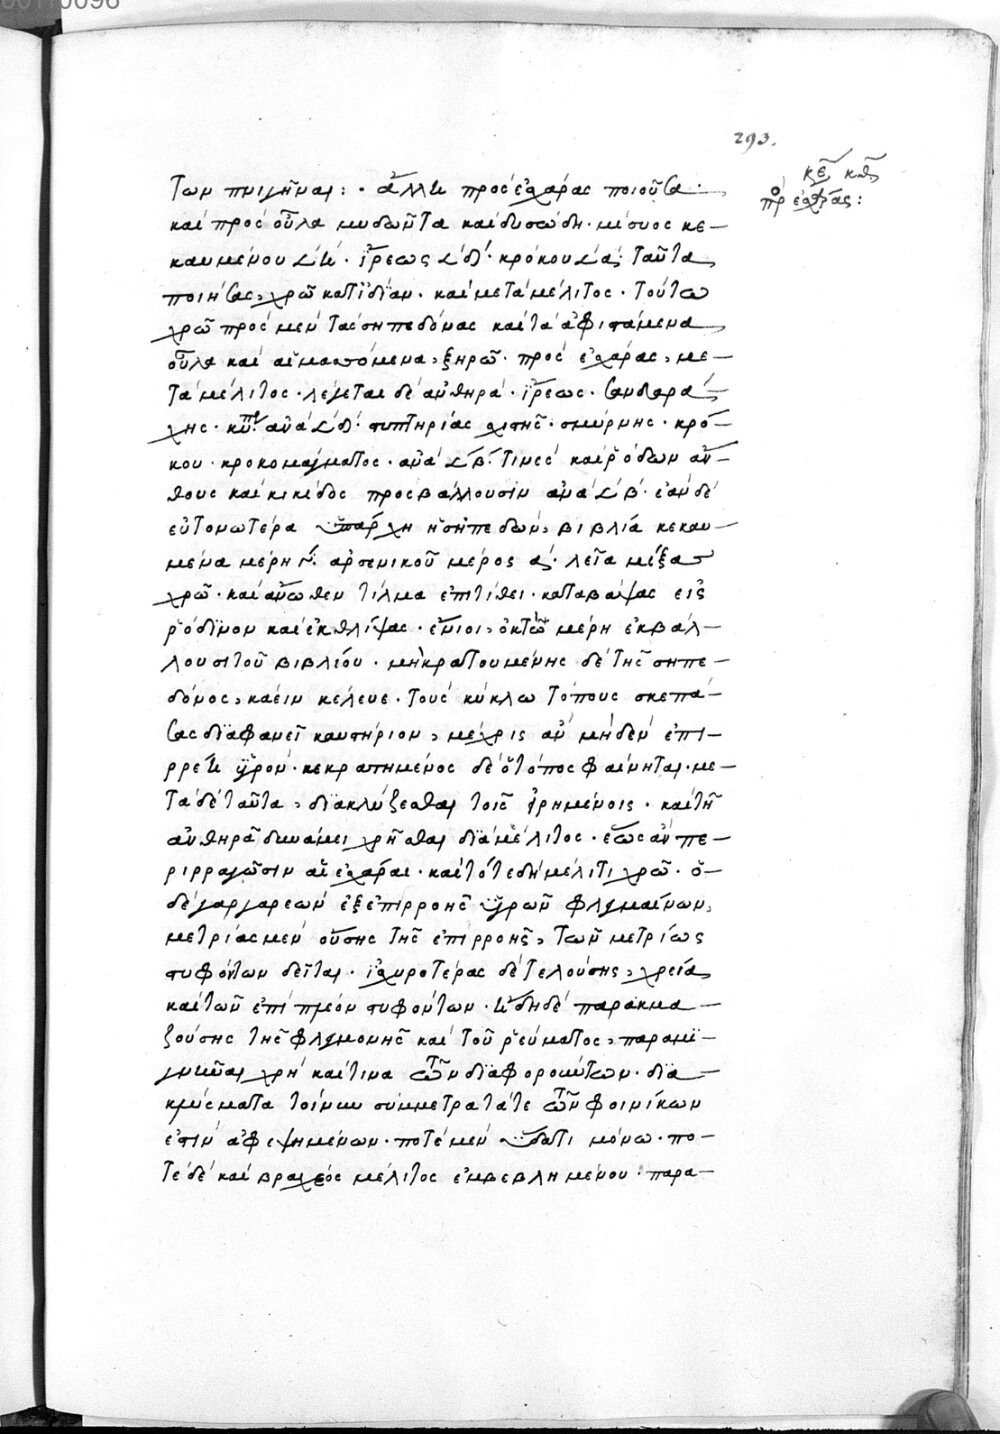 293.
κε κθ
πρ εσχάρας:
των πνιγῆναι: · ἄλλη πρὸς ἐσχάρας ποιοῦσα ·
καὶ πρὸς οὖλα μυδῶντα καὶ δυσώδη · μίσυος κε-
καυμένου 𐅻 η · ἴρεως 𐅻 δ · κρόκου 𐅻 α · ταῦτα
ποιήσας, χρῶ κατιδίαν · καὶ μετὰ μέλιτος · τούτω
χρῶ πρὸς μὲν τὰς σηπεδόνας καὶ τὰ ἀφιστάμενα
οὖλα καὶ αἱμασσόμενα, ξηρῶ · πρὸς ἐσχάρας, με-
τὰ μέλιτος · λέγεται δὲ ἀνθηρά · ἴρεως · σανδαρά-
χης · ἀνὰ 𐅻 δ · στυπτηρίας σχιστῆς · σμύρνης · κρό-
κου · κροκομάγματος · ἀνὰ 𐅻 β · τινὲς καὶ ῥόδων ἄν-
θους καὶ κικίδος προσβάλλουσιν ἀνὰ 𐅻 β · ἐὰν δὲ
εὐτονωτέρα ὑπάρχη ἡ σηπεδών, βιβλία κεκαυ-
μένα μέρη γ · ἀρσενικοῦ μέρος α · λεῖα μίξας
χρῶ · καὶ ἄνωθεν τίλμα ἐπιτίθει · καταβάψας εἰς
ῥόδινον καὶ ἐκθλίψας · ἔνιοι, ὀκτὼ μέρη ἐκβάλ-
λουσι τοῦ βιβλίου · μὴ κρατουμένης δὲ τῆς σηπε-
δόνος, καίειν κέλευε · τοὺς κύκλω τόπους σκεπά-
σας διαφανεῖ καυστήριον, μέχρις ἂν μηδὲν ἐπι-
ρρέη ὑγρόν · κεκρατημένος δὲ ὁ τόπος φαίνηται · με-
τὰ δὲ ταῦτα, διακλύζεσθαι τοῖς εἰρημένοις · καὶ τῆ
ἀνθηρᾶ δυνάμει χρῆσθαι διὰ μέλιτος · ἕως ἂν πε-
ριρραγῶσιν αἱ ἐσχάραι · καὶ τότε δὴ μέλιτι χρῶ · ὁ-
δὲ γαργαρεὼν ἐξ ἐπιρροῆς ὑγρῶν φλεγμαίνων,
μετρίας μὲν οὔσης τῆς ἐπιρροῆς, τῶν μετρίως
στυφόντων δεῖται · ἰσχυροτέρας δὲ τελούσης, χρεία
καὶ τῶν ἐπὶ πλέον στυφόντων · ἤδη δὲ παρακμα-
ζούσης τῆς φλεγμονῆς καὶ τοῦ ῥεύματος, παραμι-
γνύναι χρὴ καί τινα τῶν διαφορούντων · δια-
κλύσματα τοίνυν σύμμετρα τά τε τῶν φοινίκων
ἐστὶν ἀφεψημένων · ποτὲ μὲν ὕδατι μόνω · πο-
τὲ δὲ καὶ βραχέος μέλιτος ἐμβεβλημένου · παρα-